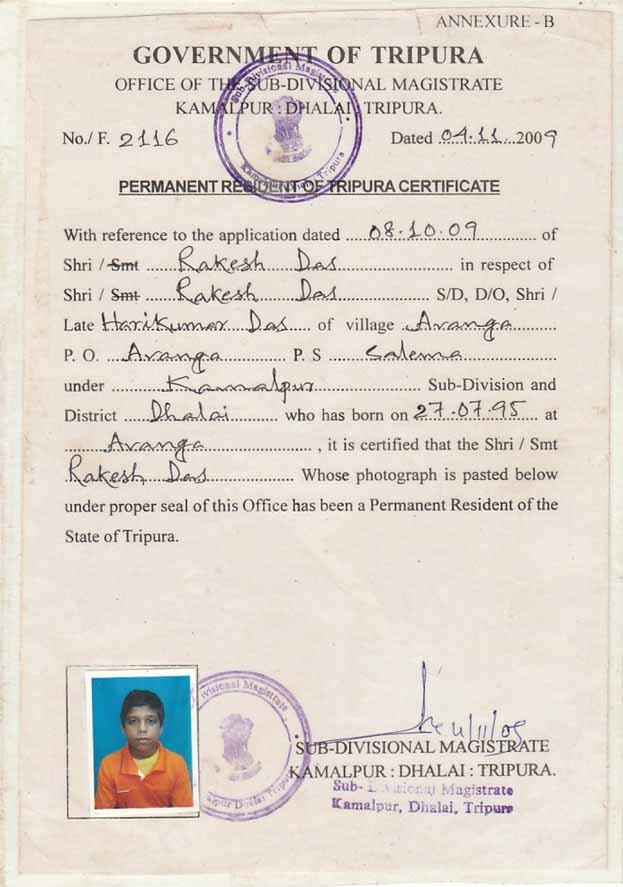 ANNEXURE - B
GOVERNMENT OF TRIPURA
OFFICE OF THE SUB-DIVISIONAL MAGISTRATE
KAMALPUR : DHALAI : TRIPURA.
Sub-Divisional Magistrate
Kamalpur Dhalai Tripura
No./ F. 2116 Dated 04.11...2009
PERMANENT RESIDENT OF TRIPURA CERTIFICATE
With reference to the application dated 08.10.09 of
Shri / Smt Rakesh Das in respect of
Shri / Smt Rakesh Das S/D, D/O, Shri /
Late Harikumar Das of village Avanga
P. O. Avanga P. S Salema
under Kamalpur Sub-Division and
District Dhalai who has born on 27.07.95 at
Avanga , it is certified that the Shri / Smt
Rakesh Das Whose photograph is pasted below
under proper seal of this Office has been a Permanent Resident of the
State of Tripura.
Divisional Magistrate
Dhalai Tripura
SUB-DIVISIONAL MAGISTRATE
KAMALPUR : DHALAI : TRIPURA.
Sub- Divisional Magistrate
Kamalpur, Dhalai, Tripura